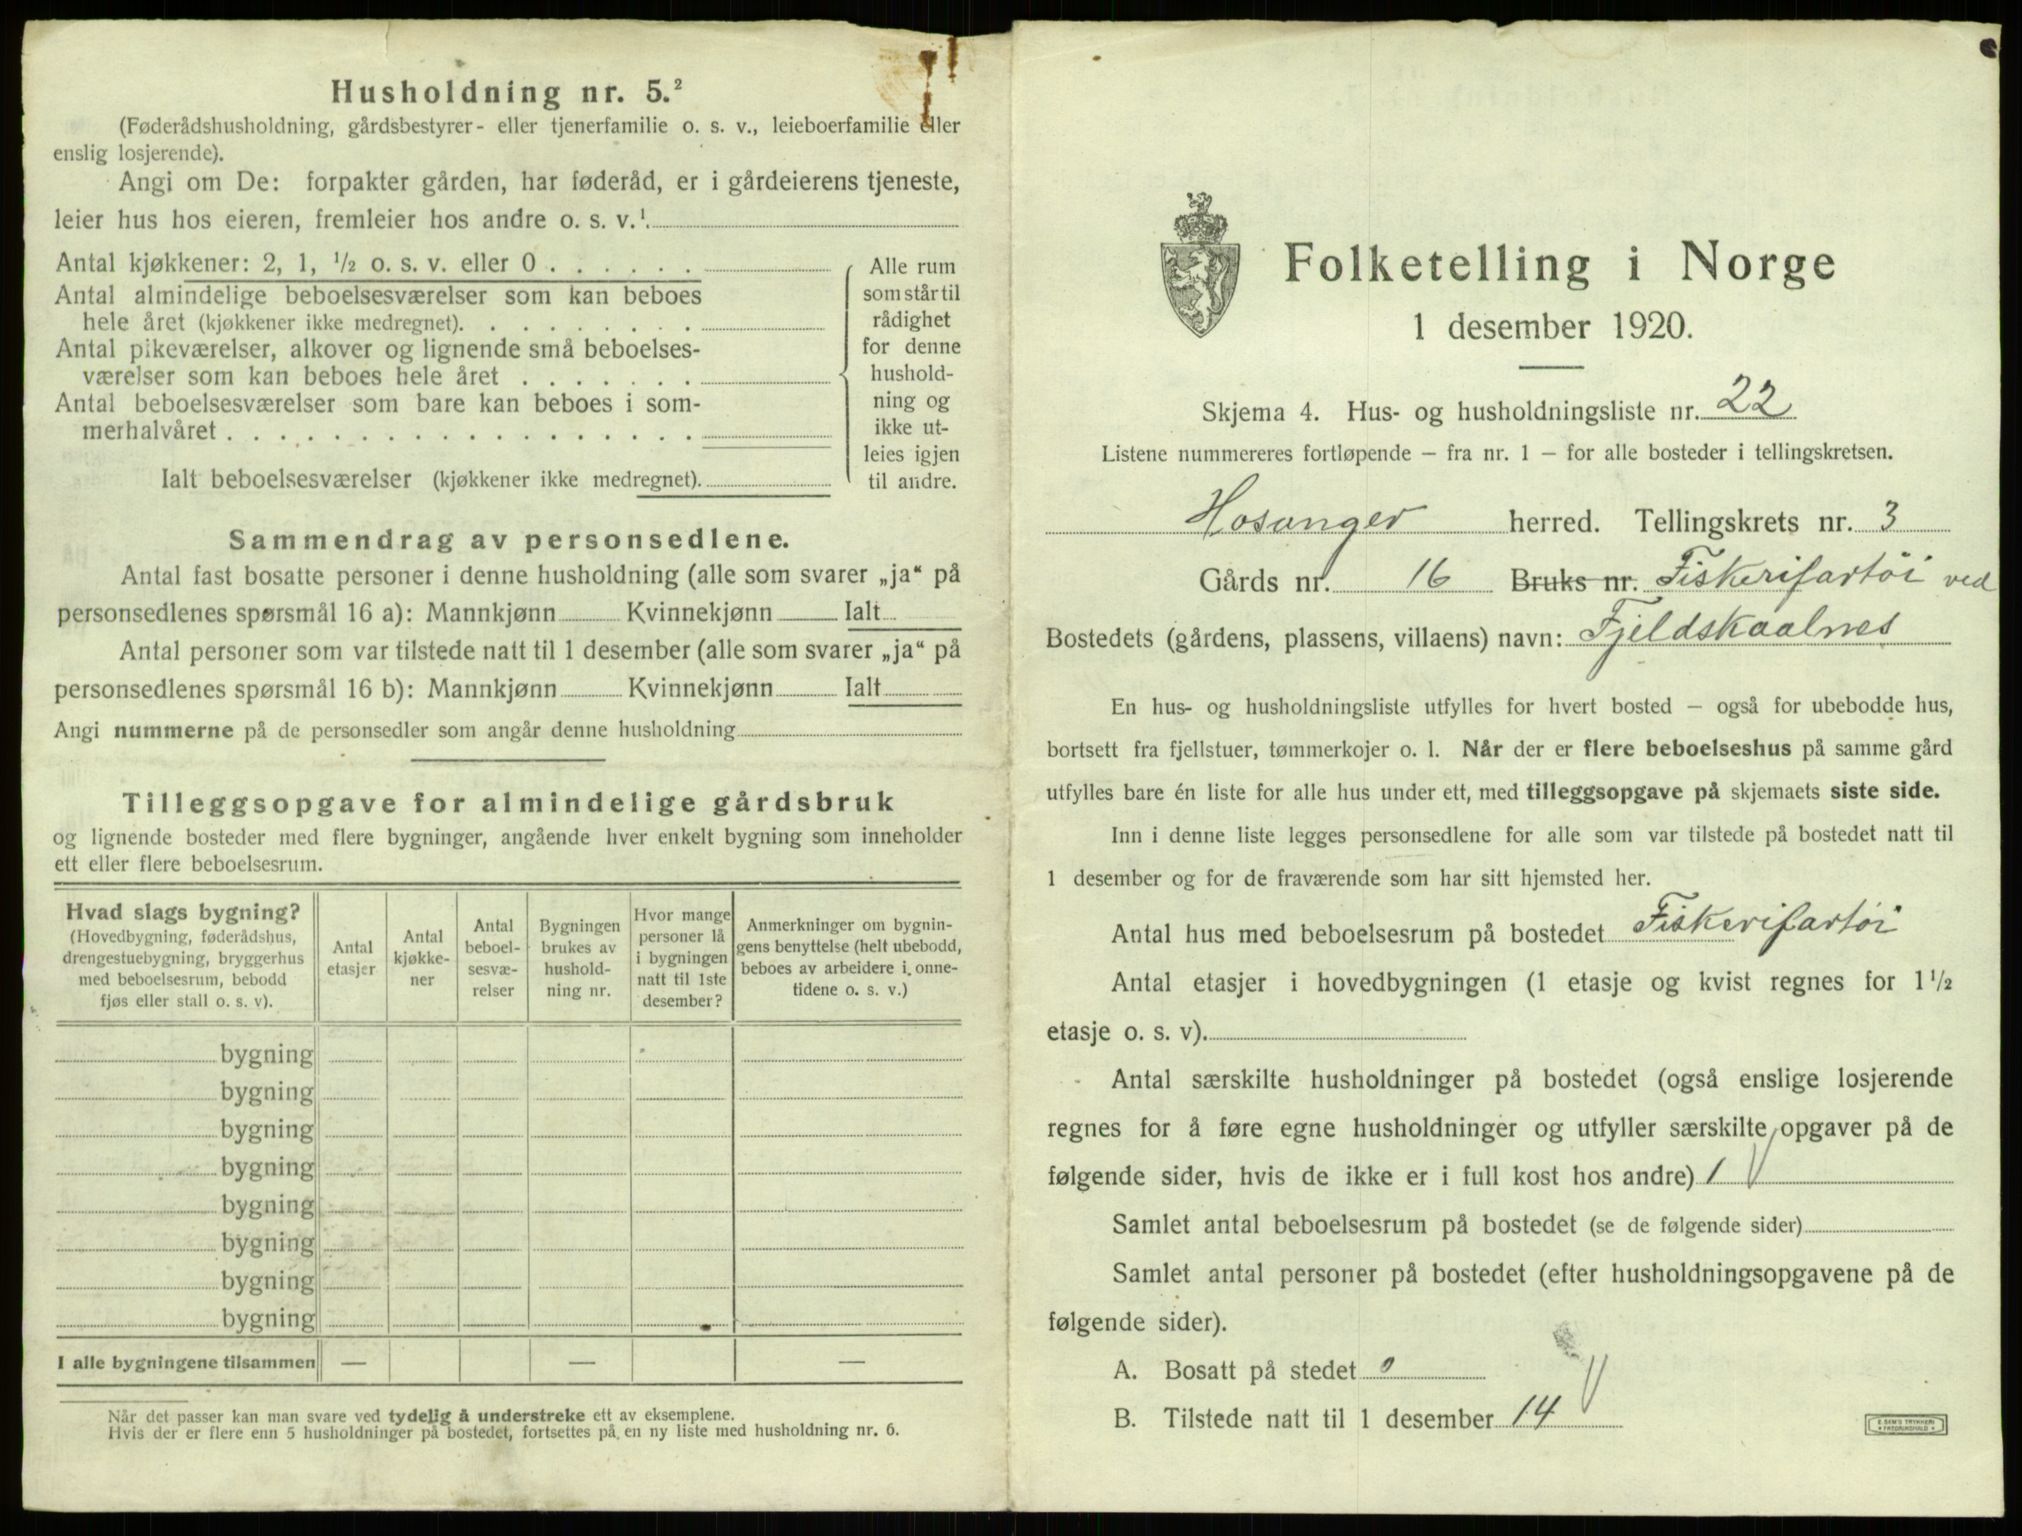 Husholdning nr. 5.²
(Føderådshusholdning, gårdsbestyrer- eller tjenerfamilie o. s. v., leieboerfamilie eller
enslig losjerende).
Angi om De: forpakter gården, har føderåd, er i gårdeierens tjeneste,
leier hus hos eieren, fremleier hos andre o. s. v.¹
Antal kjøkkener: 2, 1, ½ o. s. v. eller 0 . . . . . .
Antal almindelige beboelsesværelser som kan beboes
hele året (kjøkkener ikke medregnet). . . . . . . . .
Antal pikeværelser, alkover og lignende små beboelses-
værelser som kan beboes hele året . . . . . . .
Antal beboelsesværelser som bare kan beboes i som-
merhalvåret . . . . . . . . . . . . . . . . . .
Ialt beboelsesværelser (kjøkkener ikke medregnet).
Alle rum
som står til
rådighet
for denne
hushold-
ning og
ikke ut-
leies igjen
til andre.
Sammendrag av personsedlene.
Antal fast bosatte personer i denne husholdning (alle som svarer „ja“ på
personsedlenes spørsmål 16 a): Mannkjønn Kvinnekjønn Ialt
Antal personer som var tilstede natt til 1 desember (alle som svarer „ja“ på
personsedlenes spørsmål 16 b): Mannkjønn Kvinnekjønn Ialt
Angi nummerne på de personsedler som angår denne husholdning
Tilleggsopgave for almindelige gårdsbruk
og lignende bosteder med flere bygninger, angående hver enkelt bygning som inneholder
ett eller flere beboelsesrum.
Hvad slags bygning?
(Hovedbygning, føderådshus,
drengestuebygning, bryggerhus
med beboelsesrum, bebodd
fjøs eller stall o. s. v).
Antal
etasjer
Antal
kjøkke-
ner
Antal
beboel-
sesvæ-
relser
Bygningen
brukes av
hushold-
ning nr.
Hvor mange
personer lå
i bygningen
natt til 1ste
desember?
Anmerkninger om bygnin-
gens benyttelse (helt ubebodd,
beboes av arbeidere i onne-
tidene o. s. v.)
bygning
bygning
bygning
bygning
bygning
bygning
bygning
bygning
I alle bygningene tilsammen — — —
Når det passer kan man svare ved tydelig å understreke ett av eksemplene.
Hvis der er flere enn 5 husholdninger på bostedet, fortsettes på en ny liste med husholdning nr. 6.
Folketelling i Norge
1 desember 1920.
Skjema 4. Hus- og husholdningsliste nr. 22
Listene nummereres fortløpende — fra nr. 1 — for alle bosteder i tellingskretsen.
Hosanger herred. Tellingskrets nr. 3
Gårds nr. 16 Bruks nr. Fiskerifartøi ved
Bostedets (gårdens, plassens, villaens) navn: Fjeldskaalnes
En hus- og husholdningsliste utfylles for hvert bosted — også for ubebodde hus,
bortsett fra fjellstuer, tømmerkojer o. l. Når der er flere beboelseshus på samme gård
utfylles bare én liste for alle hus under ett, med tilleggsopgave på skjemaets siste side.
Inn i denne liste legges personsedlene for alle som var tilstede på bostedet natt til
1 desember og for de fraværende som har sitt hjemsted her.
Antal hus med beboelsesrum på bostedet Fiskerifartøi
Antal etasjer i hovedbygningen (1 etasje og kvist regnes for 1½
etasje o. s. v).
Antal særskilte husholdninger på bostedet (også enslige losjerende
regnes for å føre egne husholdninger og utfyller særskilte opgaver på de
følgende sider, hvis de ikke er i full kost hos andre) 1
Samlet antal beboelsesrum på bostedet (se de følgende sider)
Samlet antal personer på bostedet (efter husholdningsopgavene på de
følgende sider).
A. Bosatt på stedet 0
B. Tilstede natt til 1 desember 14
E. SEM'S TRYKKERI
FREDRIKSHALD